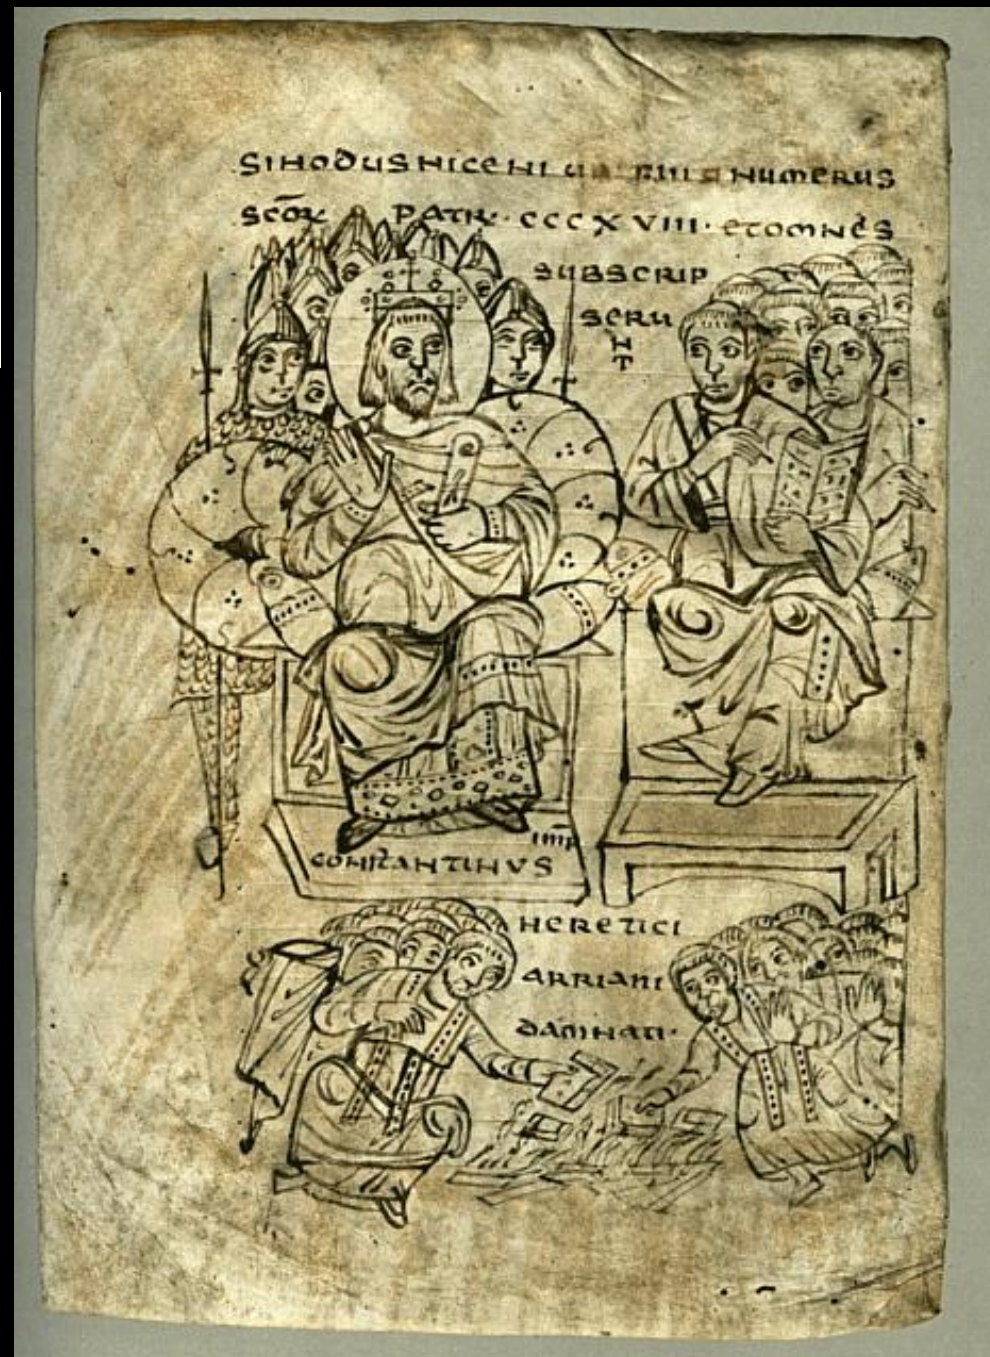 SINODUS NICENI NUMERUS
SCŌR PATR · CCCXVIII · ET OMNES
SUBSCRIP
SERU
N
T
IMP
CONSTANTINUS
HERETICI
ARRIANI
DAMNATI ·